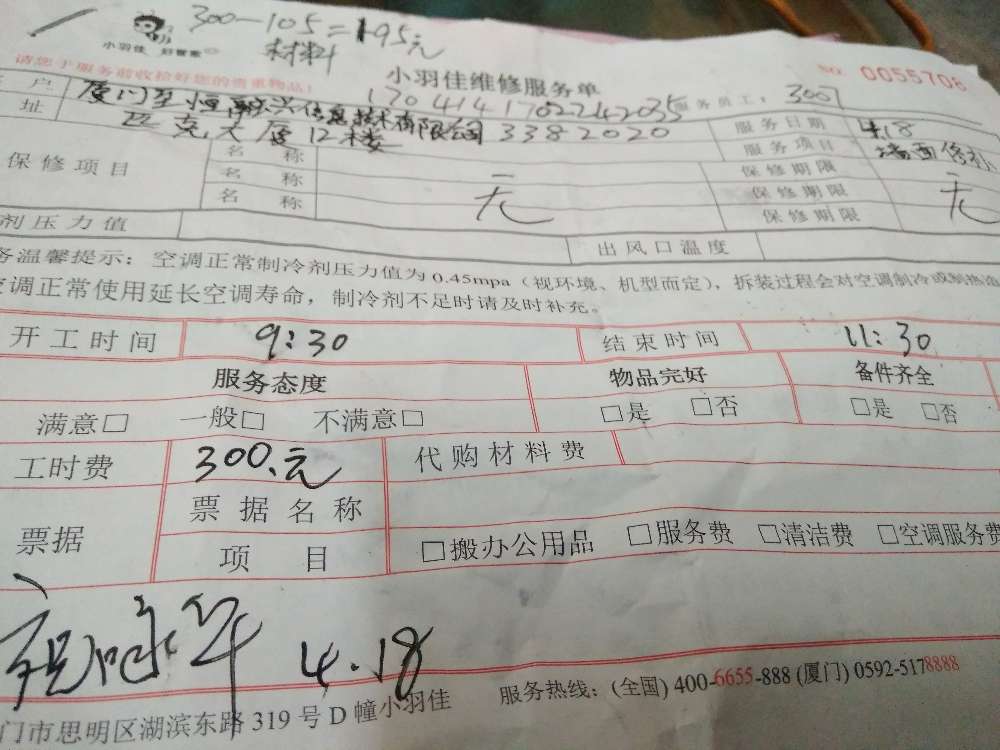 300-105=195元
材料
小羽佳 好管家
请您于服务前收拾好您的贵重物品!
小羽佳维修服务单
NO 0055706
户 厦门至恒融兴信息技术有限公司 17041417022242035 服务员工: 3007
址 匹克大厦12楼 3382020 服务日期 4.18
服务项目 墙面修补
保修项目 名称 无 保修期限 无
名称 保修期限
名称 保修期限
剂压力值 出风口温度
务温馨提示: 空调正常制冷剂压力值为0.45mpa (视环境、机型而定), 拆装过程会对空调制冷或制热造
调正常使用延长空调寿命, 制冷剂不足时请及时补充。
开工时间 9:30 结束时间 11:30
服务态度 物品完好 备件齐全
满意□ 一般□ 不满意□ □是 □否 □是 □否
工时费 300.元 代购材料费
票据 票据名称
项目 □搬办公用品 □服务费 □清洁费 □空调服务费
4.18
门市思明区湖滨东路 319 号 D 幢小羽佳 服务热线: (全国) 400-6655-888 (厦门) 0592-5178888